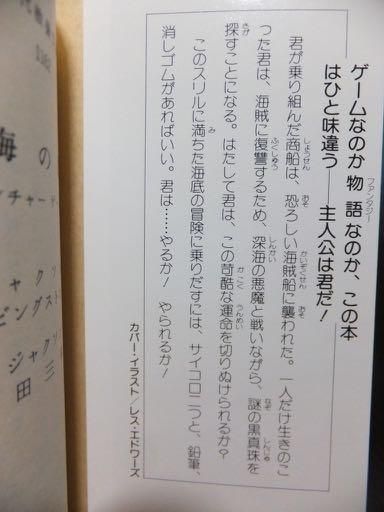 ゲームなのか物語なのか、この本
ファンタジー
はひと味違う——主人公は君だ!
君が乗り組んだ商船は、恐ろしい海賊船に襲われた。一人だけ生きのこ
しょうせん おそ かいぞくせん おそ
った君は、海賊に復讐するため、深海の悪魔と戦いながら、謎の黒真珠を
ふくしゅう しんかい なぞ しんじゅ
探すことになる。はたして君は、この苛酷な運命を切りぬけられるか?
さが かこく うんめい
このスリルに満ちた海底の冒険に乗りだすには、サイコロ二つと、鉛筆、
み
消しゴムがあればいい。君は……やるか! やられるか!
カバー・イラスト/レス・エドワーズ
海の
チャード・
ャクソ
ビングスト
ジャクソ
田三